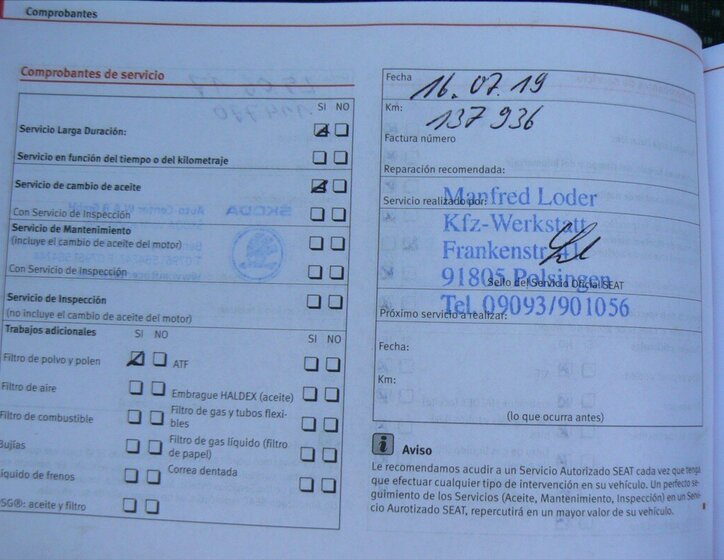 Comprobantes
Comprobantes de servicio
SI NO
Servicio Larga Duración:
Servicio en función del tiempo o del kilometraje
Servicio de cambio de aceite
Con Servicio de Inspección
Servicio de Mantenimiento
(incluye el cambio de aceite del motor)
Con Servicio de Inspección
Servicio de Inspección
(no incluye el cambio de aceite del motor)
Trabajos adicionales SI NO
SI NO
Filtro de polvo y polen
ATF
Filtro de aire
Embrague HALDEX (aceite)
Filtro de combustible
Filtro de gas y tubos flexi-
bles
Bujías
Filtro de gas líquido (filtro
de papel)
Líquido de frenos
Correa dentada
DSG®: aceite y filtro
Fecha 16.07.19
Km: 137 936
Factura número
Reparación recomendada:
Servicio realizado por:
Manfred Loder
Kfz-Werkstatt
Frankenstr. 41
91805 Polsingen
Sello del Servicio Oficial SEAT
Tel. 09093/901056
Próximo servicio a realizar:
Fecha:
Km:
(lo que ocurra antes)
i Aviso
Le recomendamos acudir a un Servicio Autorizado SEAT cada vez que tenga
que efectuar cualquier tipo de intervención en su vehículo. Un perfecto se-
guimiento de los Servicios (Aceite, Mantenimiento, Inspección) en un Servi-
cio Aurotizado SEAT, repercutirá en un mayor valor de su vehículo.